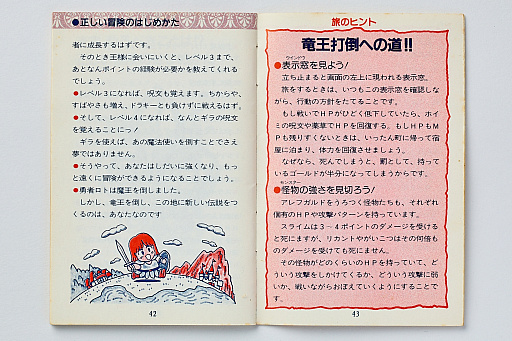 ●正しい冒険のはじめかた
者に成長するはずです。
そのとき王様に会いにいくと、レベル3まで、
あとなんポイントの経験が必要かを教えてくれる
でしょう。
●レベル3になれば、呪文も覚えます。ちからや、
すばやさも増え、ドラキーとも負けずに戦えるはず。
●そして、レベル4になれば、なんとギラの呪文
を覚えることにっ!
ギラを使えば、あの魔法使いを倒すことでさえ
夢ではありません。
●そうやって、あなたはしだいに強くなり、もっ
と遠くに冒険ができるようになることでしょう。
●勇者ロトは魔王を倒しました。
しかし、竜王を倒し、この地に新しい伝説をつ
くるのは、あなたなのです
42
旅のヒント
竜王打倒への道!!
ウインドウ
●表示窓を見よう!
立ち止まると画面の左上に現われる表示窓。
旅をするときは、いつもこの表示窓を確認しな
がら、行動の方針をたてることです。
もし戦いでHPがひどく低下していたら、ホイ
ミの呪文や薬草でHPを回復する。もしHPもM
Pも残りすくないときは、いったん町に帰って宿
屋に泊まり、体力を回復させましょう。
なぜなら、死んでしまうと、罰として、持って
いるゴールドが半分になってしまうからです。
モンスター
●怪物の強さを見切ろう!
アレフガルドをうろつく怪物たちも、それぞれ
個有のHPや攻撃パターンを持っています。
スライムは3〜4ポイントのダメージを受ける
と死にますが、リカントやがいこつはその何倍も
のダメージを受けても死にません。
その怪物がどのくらいのHPを持っていて、ど
ういう攻撃をしかけてくるか、どういう攻撃に弱
いか、戦いながらおぼえていくようにすることで
す。
43